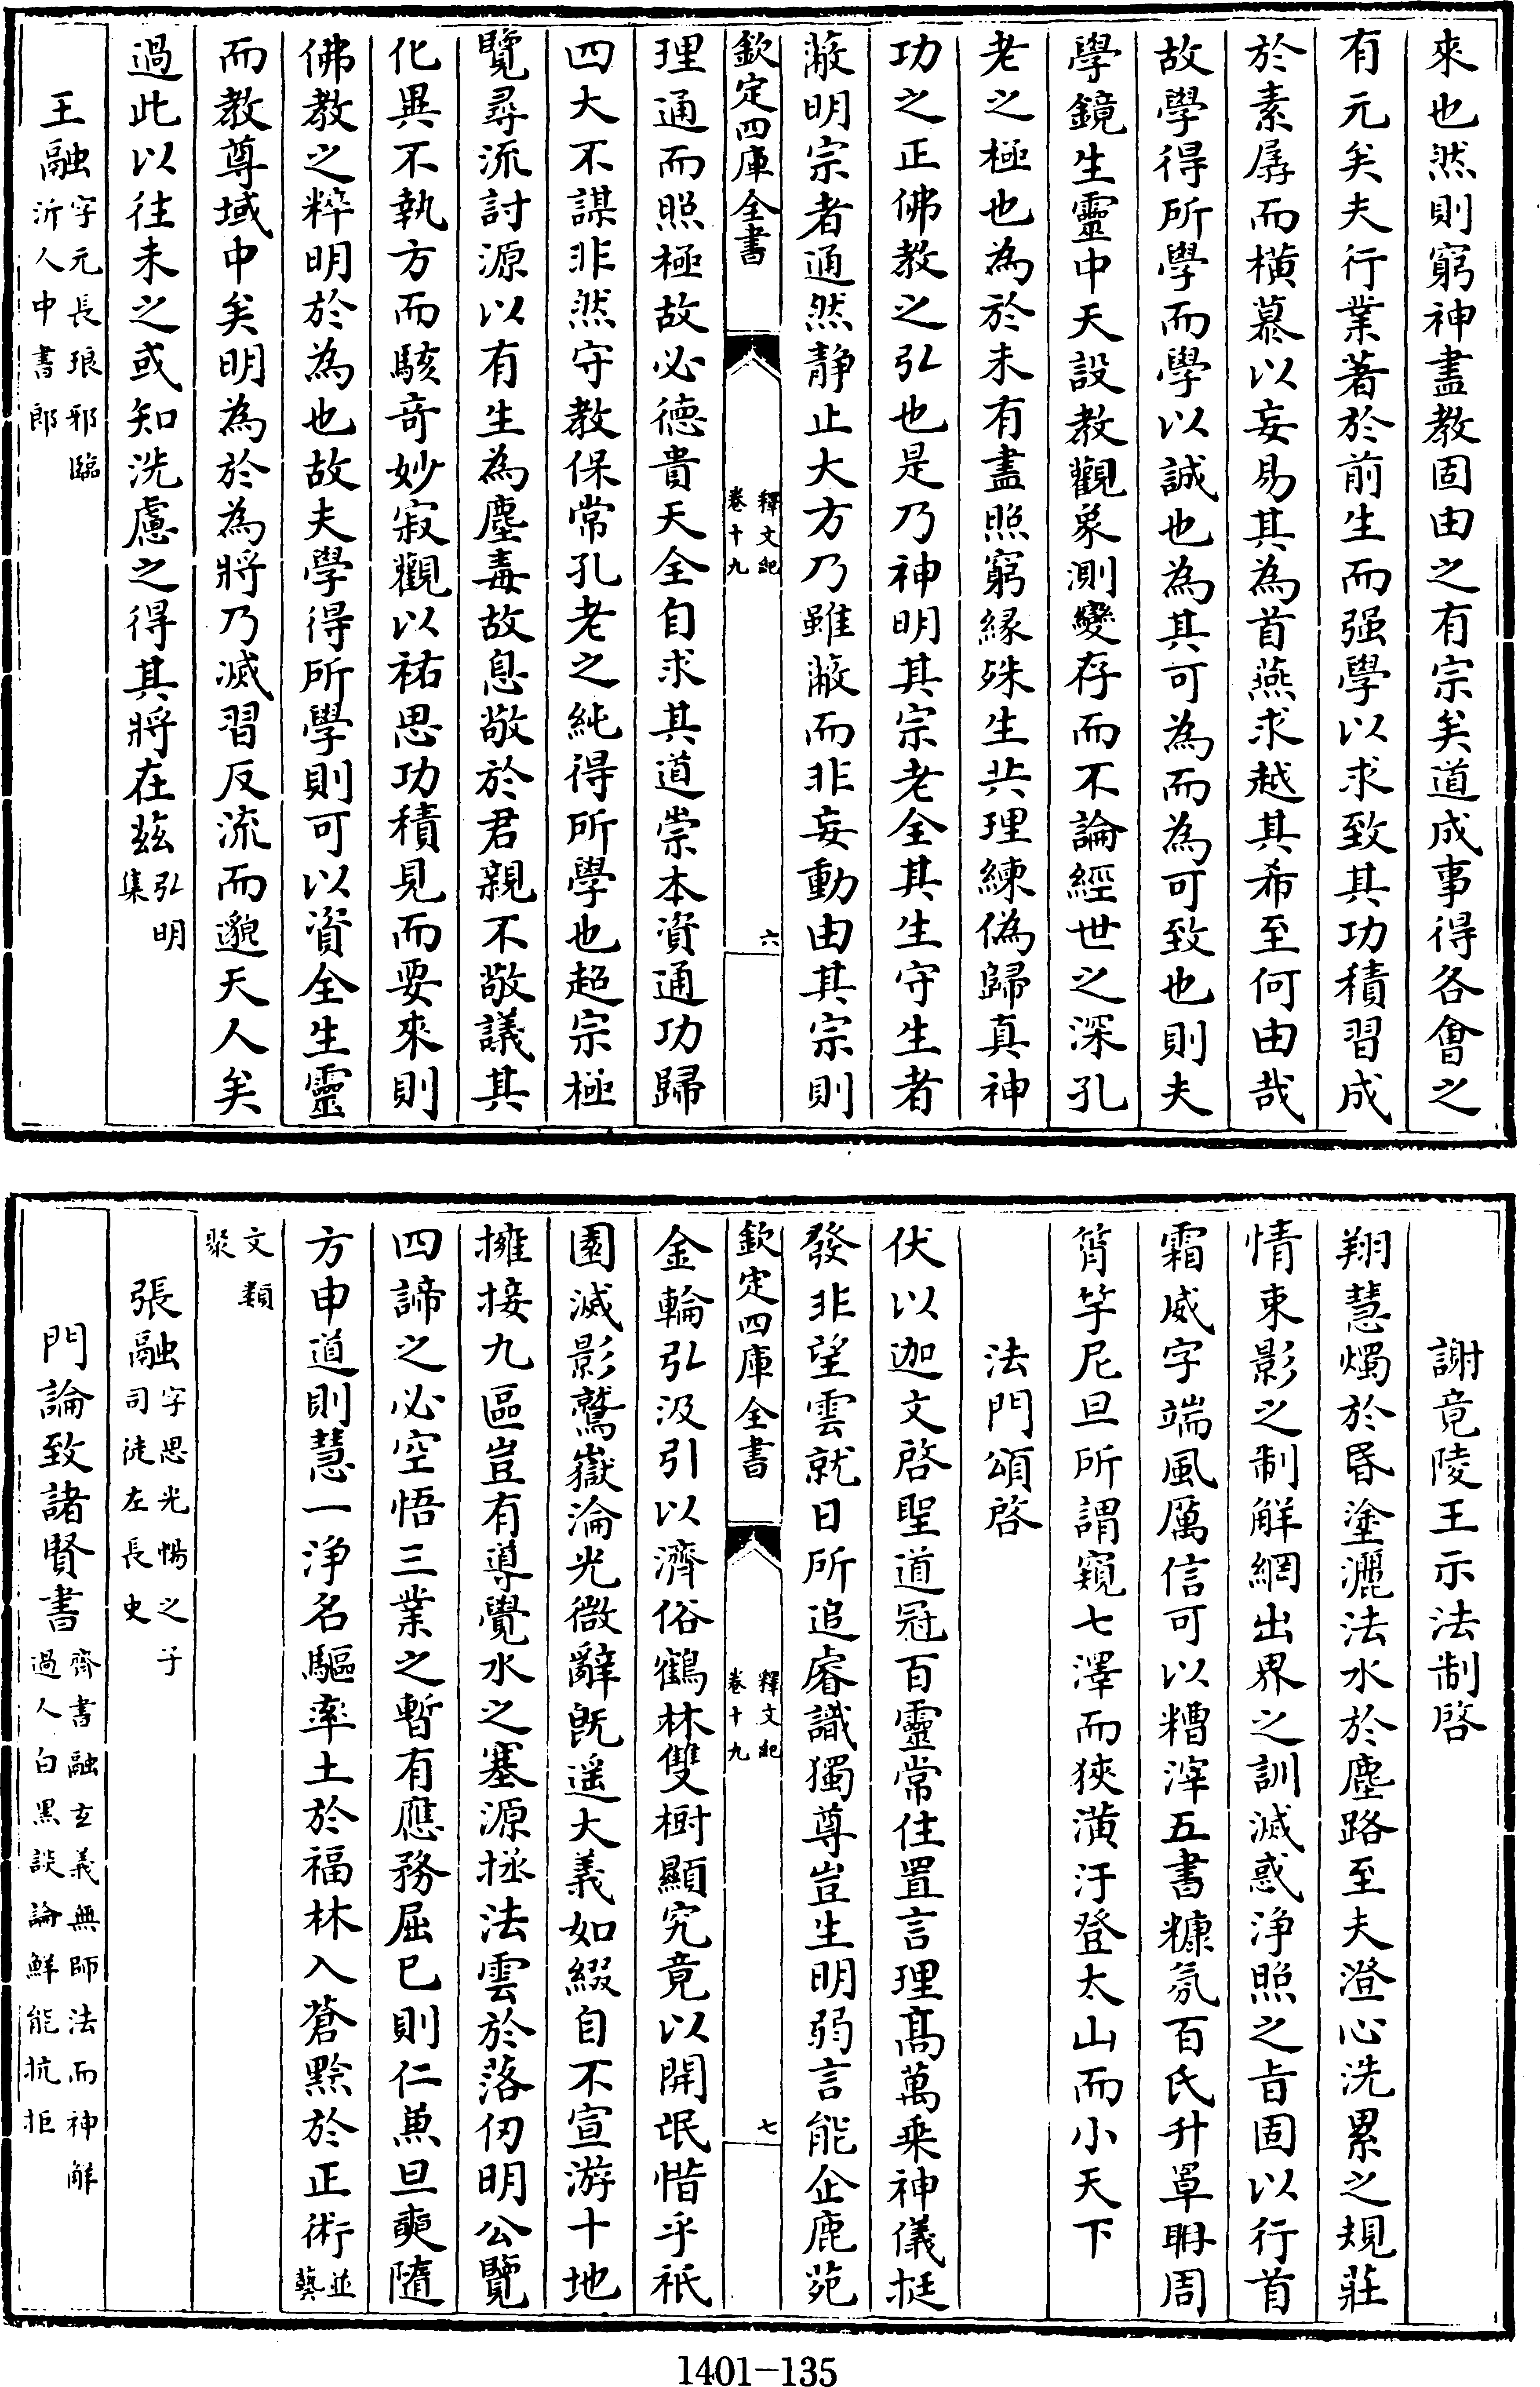 來也然則窮神盡教固由之有宗矣道成事得各會之
有元矣夫行業著於前生而强學以求致其功積習成
於素孱而橫慕以妄易其為首燕求越其希至何由哉
故學得所學而學以誠也為其可為而為可致也則夫
學鏡生靈中天設教觀象測變存而不論經世之深孔
老之極也為於未有盡照窮緣殊生共理練偽歸真神
功之正佛教之弘也是乃神明其宗老全其生守生者
蔽明宗者通然靜止大方乃雖蔽而非妄動由其宗則
欽定四庫全書
釋文紀
卷十九
六
理通而照極故必德貴天全自求其道崇本資通功歸
四大不謀非然守教保常孔老之純得所學也超宗極
覽尋流討源以有生為塵毒故息敬於君親不敬議其
化異不執方而駭奇妙寂觀以祐思功積見而要來則
佛教之粹明於為也故夫學得所學則可以資全生靈
而教尊域中矣明為於為將乃滅習反流而邈天人矣
過此以往未之或知洗慮之得其將在兹弘明
集
王融字元長琅邪臨
沂人中書郎
謝竟陵王示法制啓
翔慧燭於昏塗灑法水於塵路至夫澄心洗累之規莊
情束影之制解網出界之訓滅惑淨照之旨固以行首
霜威字端風厲信可以糟滓五書糠氛百氏升罩聃周
筲竽尼旦所謂窺七澤而狹潢汙登太山而小天下
法門頌啓
伏以迦文啓聖道冠百靈常住置言理髙萬乘神儀挺
發非望雲就日所追睿識獨尊豈生明弱言能企鹿苑
欽定四庫全書
釋文紀
卷十九
七
金輪弘汲引以濟俗鶴林雙樹顯究竟以開氓惜乎祇
園滅影鷲嶽淪光微辭旣遥大義如綴自不宣游十地
擁接九區豈有導覺水之塞源拯法雲於落仞明公覽
四諦之必空悟三業之暫有應務屈已則仁兼旦奭隨
方申道則慧一淨名驅率土於福林入蒼黔於正術並
藝
文類
聚
張融字思光暢之子
司徒左長史
門論致諸賢書齊書融玄義無師法而神解
過人白黑談論鮮能抗拒
1401-135